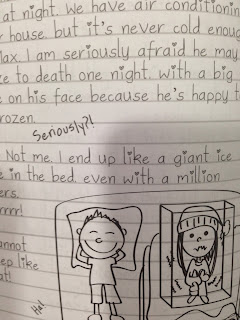 at night. We have air conditionin
house. but it's never cold enoug
Max. I am seriously afraid he may
ze to death one night. with a big
e on his face because he's happy t
frozen.
Seriously?!
Not me. I end up like a giant ice
e in the bed. even with a million
ers.
rrrr!
annot
eep like
at!
Ha!